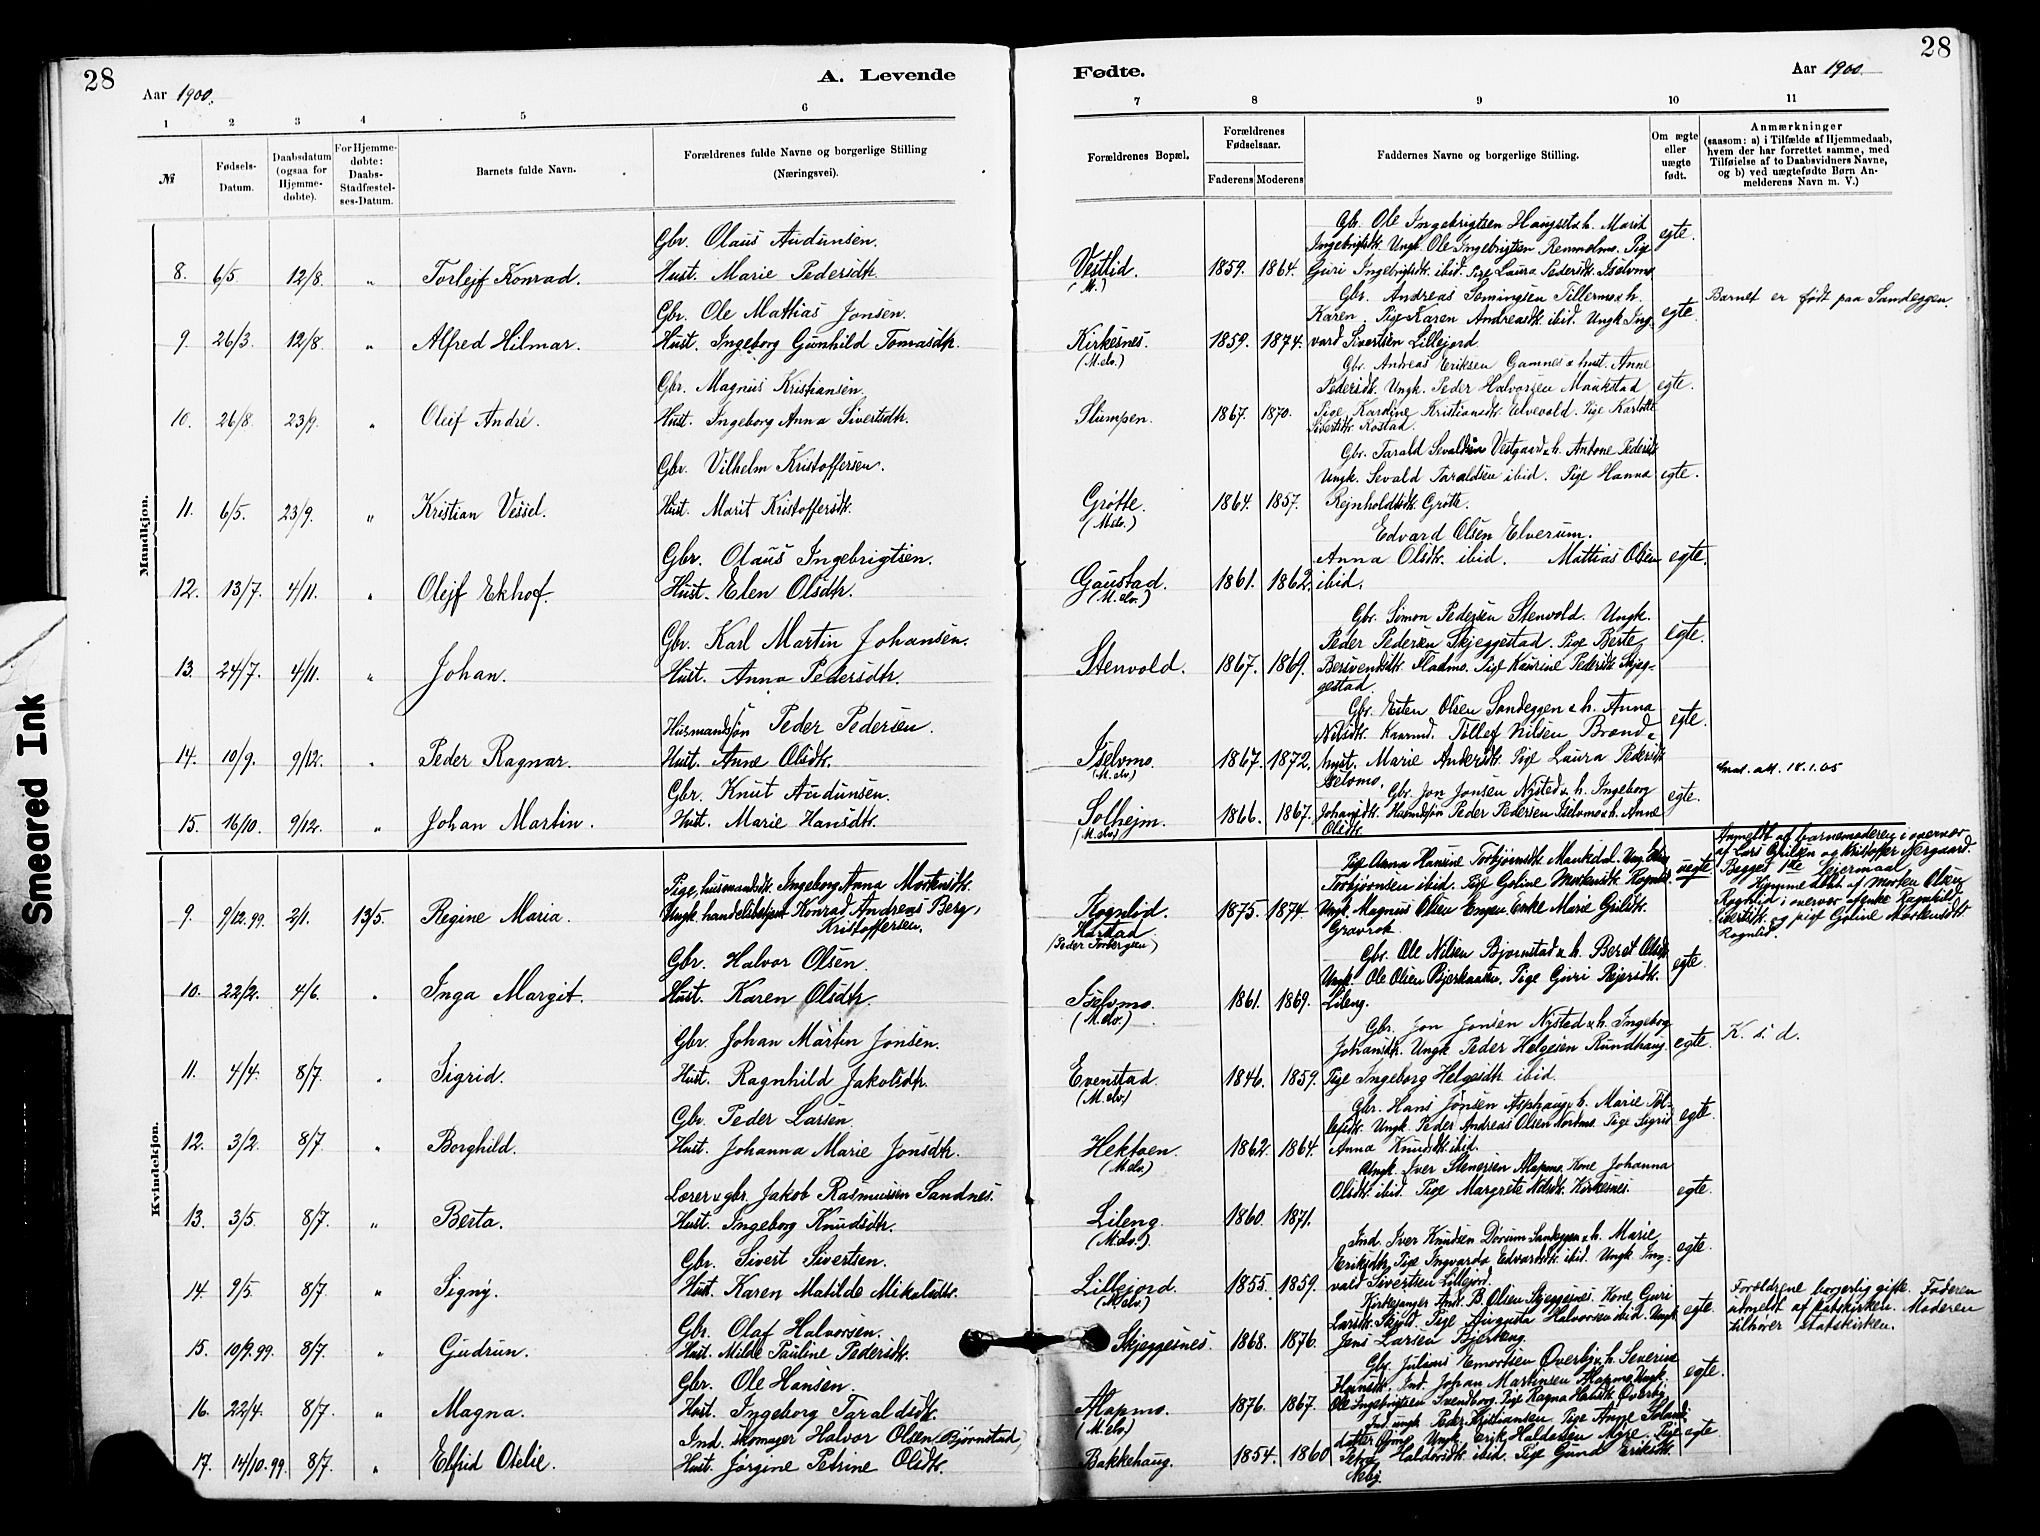 28
A. Levende
Aar 1900.
1 2 3 4 5 6
№
Fødsels-Datum.
Daabsdatum (ogsaa for Hjemmedøbte).
For Hjemmedøbte: Daabs-Stadfæstelses-Datum.
Barnets fulde Navn.
Forældrenes fulde Navne og borgerlige Stilling
(Næringsvei).
Mandkjøn.
Gbr. Olaus Audunsen.
8. 6/5 12/8. " Torlejf Konrad. Hust. Marie Pedersdtr.
Gbr. Ole Mattias Jonsen.
9. 26/3. 12/8 " Alfred Hilmar. Hust. Ingeborg Gunhild Tomasdtr.
Gbr. Magnus Kristiansen,
10. 26/8 23/9. " Oluf André. Hust. Ingeborg Anna Sivertsdtr.
Gbr. Vilhelm Kristoffersen.
11. 6/5. 23/9. " Kristian Vessel. Hust. Marit Kristoffersdtr.
Gbr. Olaus Ingebrigtsen.
12. 13/7. 4/11. " Olejf Ekhof. Hust. Elen Olsdtr.
Gbr. Karl Martin Johansen.
13. 24/7. 4/11. " Johan. Hust. Anna Pedersdtr.
Husmandssøn Peder Pedersen.
14. 10/9. 9/12. " Peder Ragnar. Hust. Anne Olsdtr.
Gbr. Knut Audunsen.
15. 16/10. 9/12. " Johan Martin. Hust. Marie Hansdtr.
Kvindekjøn.
Pige, husmandsdtr. Ingeborg Anna Mortensdtr.
9. 9/12.99. 2/1. 13/5. Regine Maria. Ungk. handelsbetjent Konrad Andreas Berg,
Kristoffersen.
Gbr. Halvor Olsen.
10. 22/2. 4/6. " Inga Margit. Hust. Karen Olsdtr.
Gbr. Johan Martin Jonsen.
11. 4/4. 8/7. " Sigrid. Hust. Ragnhild Jakobsdtr.
Gbr. Peder Larsen.
12. 3/2. 8/7. " Borghild. Hust. Johanna Marie Jonsdtr.
Lærer & gbr. Jakob Rasmussen Sandnes.
13. 3/5. 8/7. " Berta. Hust. Ingeborg Knudsdtr.
Gbr. Sivert Sivertsen.
14. 9/5. 8/7. " Signy. Hust. Karen Matilde Mikalsdtr.
Gbr. Olaf Halvorsen.
15. 10/9.99. 8/7. " Gudrun. Hust. Milde Pauline Pedersdtr.
Gbr. Ole Hansen.
16. 22/4. 8/7. " Magna. Hust. Ingeborg Taraldsdtr.
Ind. skomager Halvor Olsen (Bjørnstad)
17. 14/10.99. 8/7. " Elfrid Otelie. Hust. Jørgine Petrine Olsdtr.
Smeared Ink
28
Fødte.
Aar 1900.
7 8 9 10 11
Forældrenes Bopæl.
Forældrenes Fødselsaar.
Faderens Moderens
Faddernes Navne og borgerlige Stilling.
Om ægte eller uægte født.
Anmærkninger
(saasom: a) i Tilfælde af Hjemmedaab,
hvem der har forrettet samme, med
Tilføielse af to Daabsvidners Navne,
og b) ved uægtefødte Børn Anmelderens Navn m. V.)
Gbr. Ole Ingebrigtsen Haugseth & h. Marit
Ingebrigtsdtr. Ungk. Ole Ingebrigtsen Renmælmo. Pige egte.
Vestlid. 1859. 1864. Guri Ingebrigtsdtr. ibid. Pige Laura Pedersdtr. Iselvmo
(M.)
Gbr. Andreas Semingsen Tillermo & h. Barnet er født paa Sandeggen
Karen. Pige Karen Andreasdtr. ibid. Ungk. Ing- egte.
Kirkesnes. 1859. 1874. vard Sivertsen Lillejord
(M.elv.)
Gbr. Andreas Eriksen Gamnes & hust. Anne
Pedersdtr. Ungk. Peder Halvorsen Maukstad egte.
Slumpen. 1867. 1870. Pige Kardine Kristiansdtr. Elvevold. Pige Karlotte
Sivertsdtr. Rostad.
Gbr. Tarald Sevaldsen Vestgaard & h. Antone Pedersdtr
Ungk. Sevald Taraldsen ibid. Pige Hanna egte.
Grøtte. 1864. 1857. Rejnholdtsdtr. Grøtte.
(M.elv.)
Edvard Olsen Elverum.
Anna Olsdtr. ibid. Mattias Olsen egte.
Gaustad. 1861. 1862. ibid.
(M.elv.)
Gbr. Simon Pedersen Stenvold. Ungk.
Peder Pedersen Skjeggestad. Pige Berte egte.
Stenvold. 1867. 1869. Bersvendsdtr. Fladmo. Pige Kaurine Pedersdtr. Skjeg-
gestad.
Gbr. Esten Olsen Sandeggen & h. Anna
Nilsdtr. Tollef Nilsen Brand & egte.
Iselvmo. 1867. 1872. hust. Marie Andersdtr. Pige Laura Pedersdtr
(M.elv.) Iselvmo. 18.1.05
Gbr. Jon Jonsen Nysted & h. Ingeborg egte.
Solhejm. 1866. 1867. Johansdtr. Husmdssøn Peder Pedersen Iselvmo & h. Anne
(M.elv.) Olsdtr.
Pige Anna Hansine Torbjørnsdtr. Maukdal. Ung.
Torbjørnsen ibid. Pige Goline Mortensdtr. Rognlid. uegte
Rognlid. 1875. 1874 Ungk. Magnus Olsen Engen. Enke Marie
Harstad Gravrok.
(Peder Torbergsen)
Anmeldt af barnemoderen i overvær
af Lars og Kristoffer
Begges 1ste Leiermaal
Hjemmedøbt af Morten Olsen
Rognlid i overvær af enke Ragnhild
Sivertsdtr. og pige Goline Mortensdtr.
Rognlid.
Gbr. Ole Nilsen Bjørnstad & h. Beret Olsdtr.
Ungk. Ole Olsen Bjerkaaker. Pige Guri Pejersdtr. egte.
Iselvmo. 1861. 1869. Lileng.
(M.elv.)
Gbr. Jon Jonsen Nysted & h. Ingeborg K. s. d.
Johansdtr. Ungk Peder Helgesen Rundhaug. egte.
Evenstad. 1846. 1859. Pige Ingeborg Helgesdtr ibid.
(M.elv.)
Gbr. Hans Jonsen Asphaug & h. Marie Tol-
lefsdtr. Ungk. Peder Andreas Olsen Nordmo. Pige Sigrid egte.
Hektoen. 1862. 1864. Anna Knudsdtr. ibid.
(M.elv.)
Ungk. Iver Stenersen Alapmo. Kone Johanna
Olsdtr. ibid. Pige Margrete Nilsdtr. Kirkesnes. egte.
Lileng. 1860. 1871.
(M.elv.)
Ind. Iver Knudsen Dørum Sandeggen & h. Marie
Eriksdtr. Pige Ingvarda Edvardsdtr. ibid. Ungk. Ing- egte.
Lillejord. 1855. 1859. vald Sivertsen Lillejord.
(M.elv.)
Kirkesanger And. B. Olsen Skjeggesnes. Kone Guri
Larsdtr. Skjold. Pige Augusta Halvorsen ibid. Ungk. egte.
Skjeggesnes. 1868. 1876. Jens Larsen Bjerkeng.
Forældrene borgerlig gifte. Faderen
udmeldt af statskirken. Moderen
tilhører statskirken.
Gbr. Julius Emertsen Øverby & h. Severine
Hansdtr. Ind. Johan Martinsen Alapmo. Ungk. egte.
Alapmo. 1876. 1867. Ole Ingebrigtsen Svendborg. Pige Ragna Halsdtr. Øverby
(M.elv.)
Ind. ungk. Peder Kristiansen. Pige Anne
datter Ungk. Erik Haldorsen Moe. Pige egte.
Bakkehaug. 1854. 1860 Petra Haldorsdtr. ibid. Pige Gunda Eriksdtr.